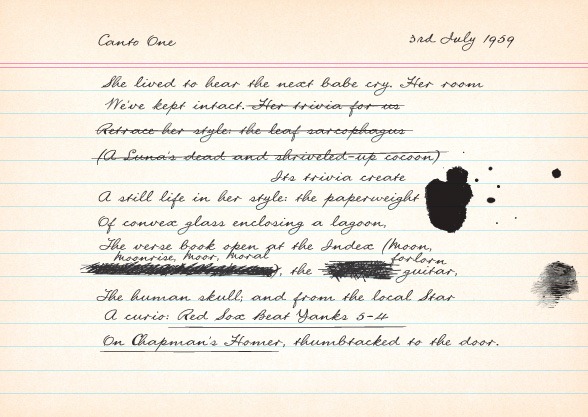 Canto One 3rd July 1959
She lived to hear the next babe cry. Her room
We've kept intact. Her trivia for us
Retrace her style: the leaf sarcophagus
(A Luna's dead and shriveled-up cocoon)
Its trivia create
A still life in her style: the paperweight
Of convex glass enclosing a lagoon,
The verse book open at the Index (Moon,
Moonrise, Moor, Moral forlorn
), the guitar,
The human skull; and from the local Star
A curio: Red Sox Beat Yanks 5-4
On Chapman's Homer, thumbtacked to the door.